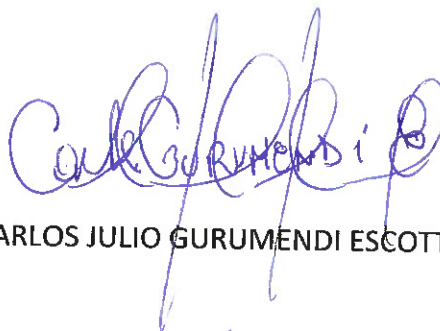 Carlos Gurumendi E
ARLOS JULIO GURUMENDI ESCOTT